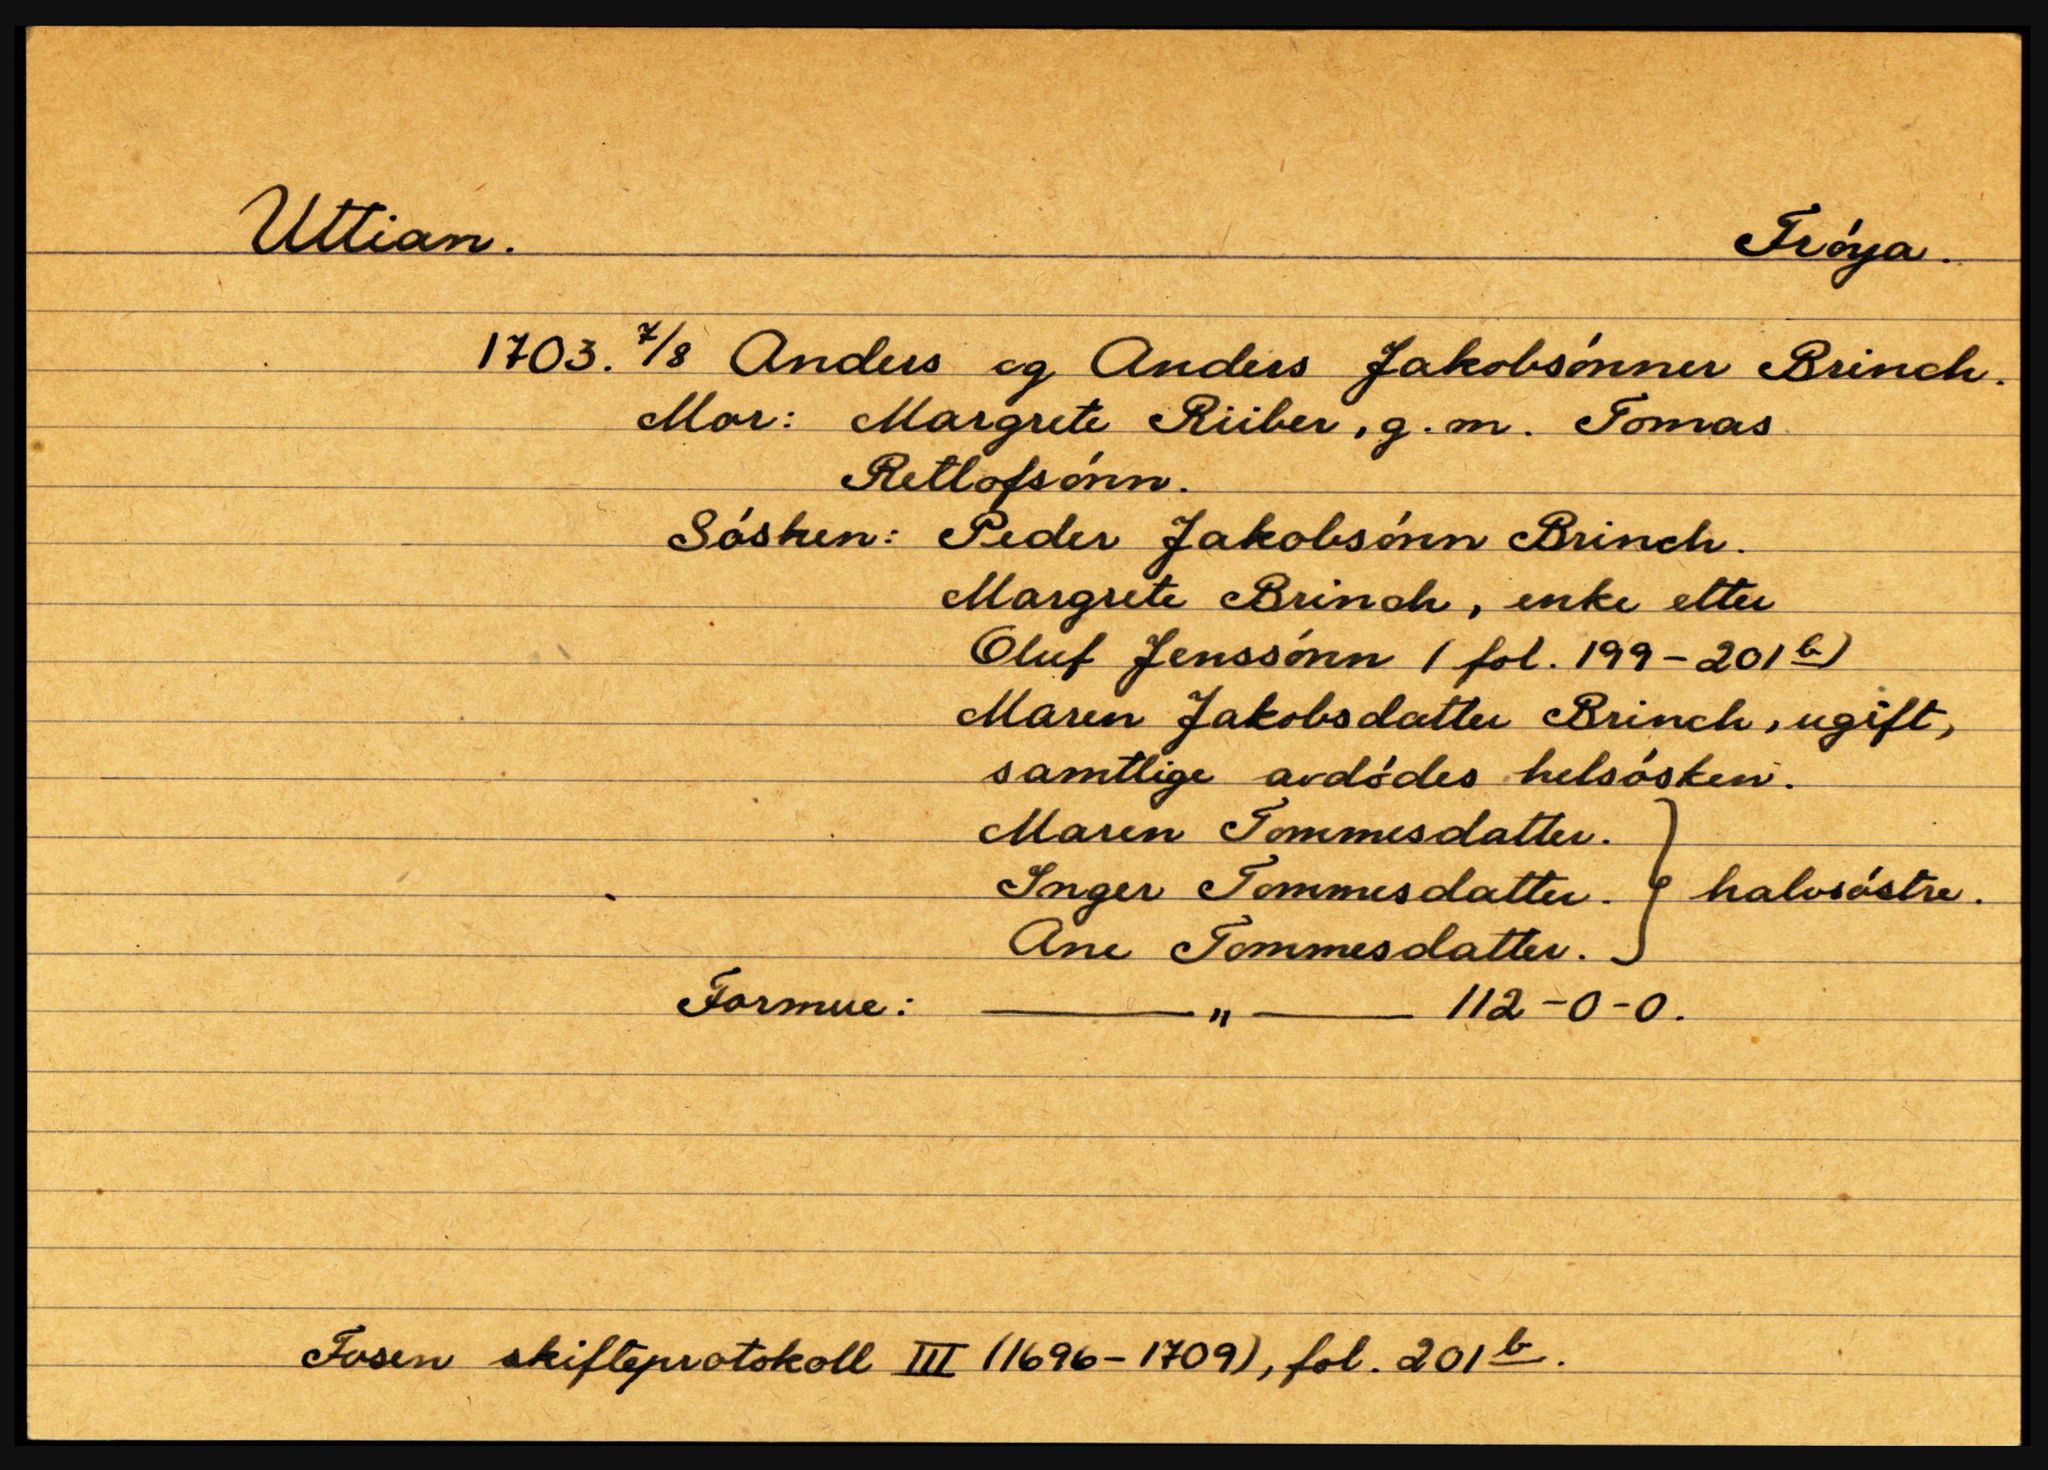 Uttian. Frøya.
1703. 7/8 Anders og Anders Jakobsønner Brinch.
Mor: Margrete Riiber, g.m. Tomas
Retlofsønn.
Søsken: Peder Jakobsønn Brinch.
Margrete Brinch, enke etter
Oluf Jenssønn (fol. 199-201b)
Maren Jakobsdatter Brinch, ugift,
samtlige avdødes helsøsken.
Maren Tommesdatter.
Inger Tommesdatter. } halvsøstre.
Ane Tommesdatter.
Formue: — " — 112-0-0.
Fosen skifteprotokoll III (1696-1709), fol. 201b.